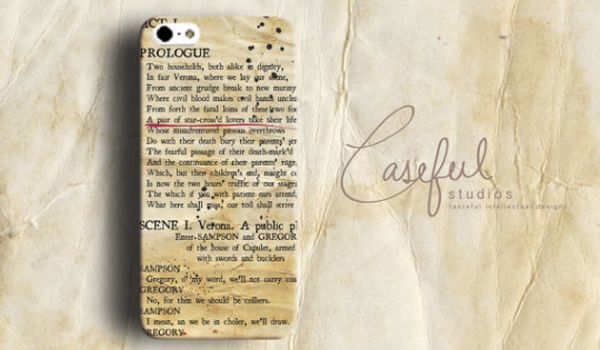 ACT I
PROLOGUE
Two households, both alike in dignity,
In fair Verona, where we lay our scene,
From ancient grudge break to new mutiny
Where civil blood makes civil hands unclea
From forth the fatal loins of these two foe
A pair of star-cross'd lovers take their life
Whose misadventured piteous overthrows
Do with their death bury their parents' str
The fearful passage of their death-mark'd
And the continuance of their parents' rage,
Which, but their children's end, nought co
Is now the two hours' traffic of our stage;
The which if you with patient ears attend,
What here shall miss, our toil shall strive
SCENE I. Verona. A public pl
Enter SAMPSON and GREGOR
of the house of Capulet, armed
with swords and bucklers
SAMPSON
Gregory, o' my word, we'll not carry coa
GREGORY
No, for then we should be colliers.
SAMPSON
I mean, an we be in choler, we'll draw.
GREGORY
Caseful
studios
tasteful intellectual designs